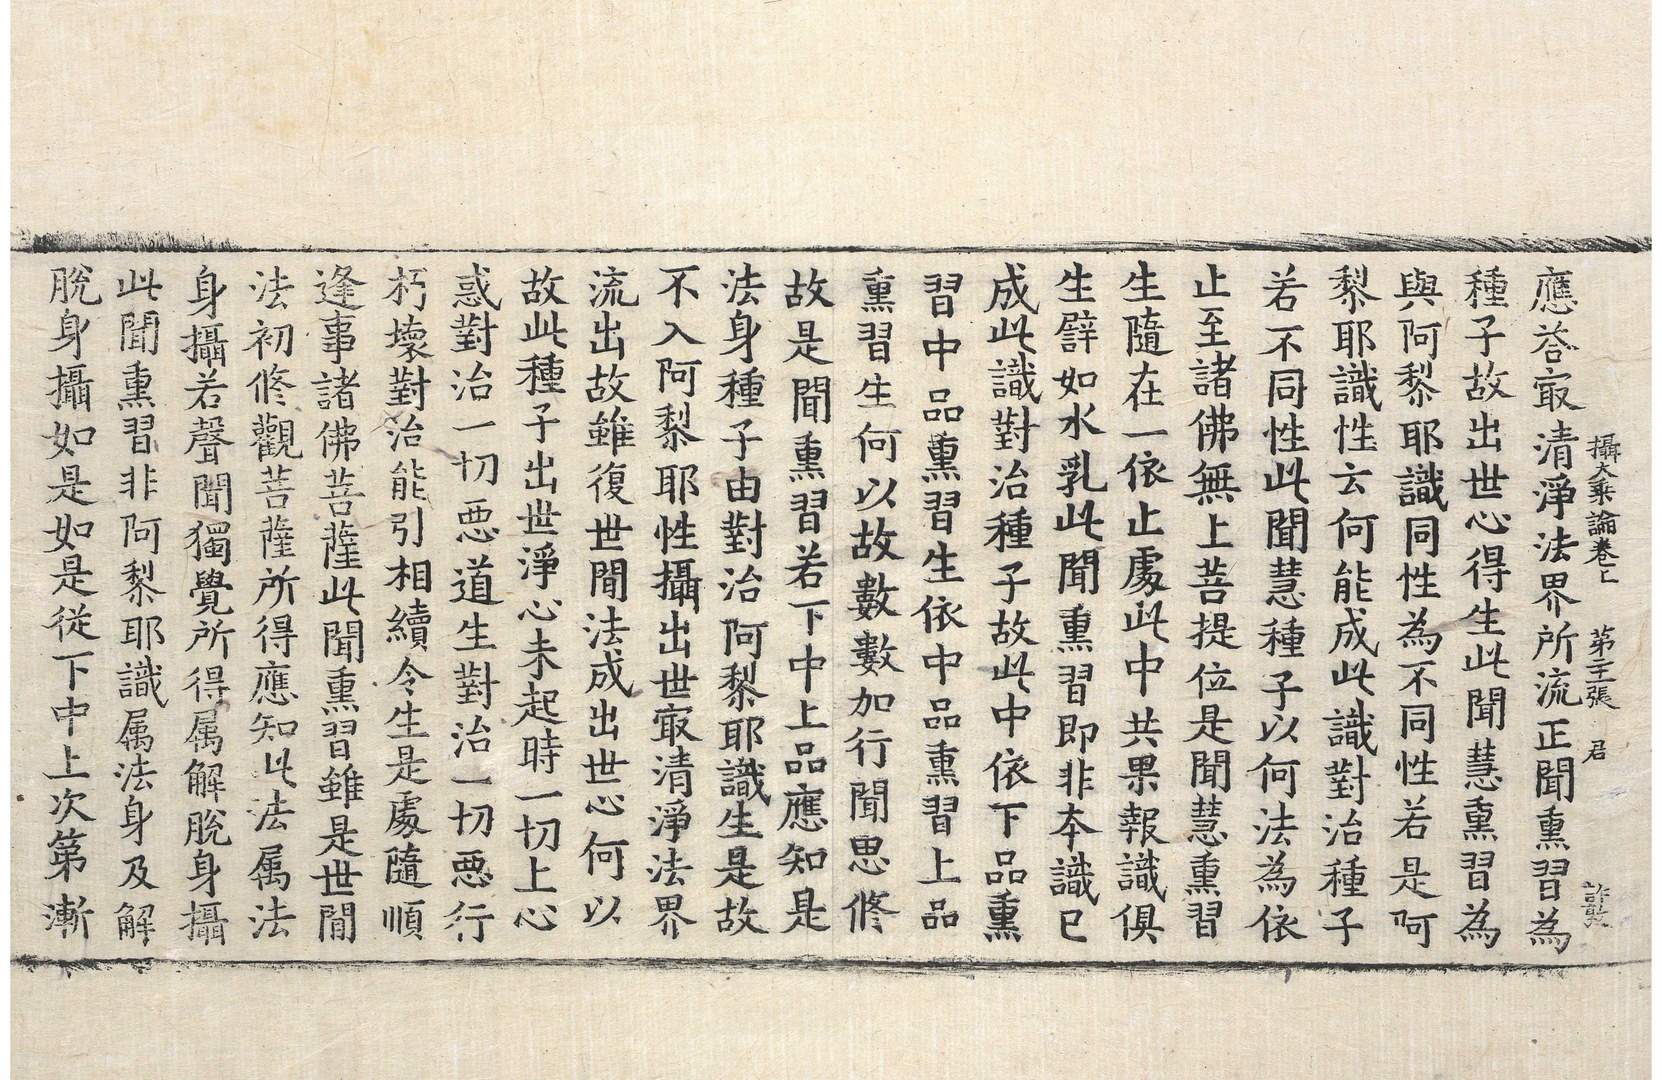 攝大乘論卷上 第二十張 君 許敦
應荅㝡清淨法界所流正聞熏習為
種子故出世心得生此聞慧熏習為
與阿黎耶識同性為不同性若是阿
黎耶識性云何能成此識對治種子
若不同性此聞慧種子以何法為依
止至諸佛無上菩提位是聞慧熏習
生隨在一依止處此中共果報識俱
生譬如水乳此聞熏習即非本識已
成此識對治種子故此中依下品熏
習中品熏習生依中品熏習上品
熏習生何以故數數加行聞思修
故是聞熏習若下中上品應知是
法身種子由對治阿黎耶識生是故
不入阿黎耶性攝出世㝡清淨法界
流出故雖復世間法成出世心何以
故此種子出世淨心未起時一切上心
惑對治一切惡道生對治一切惡行
朽壞對治能引相續令生是處隨順
逢事諸佛菩薩此聞熏習雖是世間
法初修觀菩薩所得應知此法属法
身攝若聲聞獨覺所得属解脫身攝
此聞熏習非阿黎耶識属法身及解
脫身攝如是如是從下中上次第漸